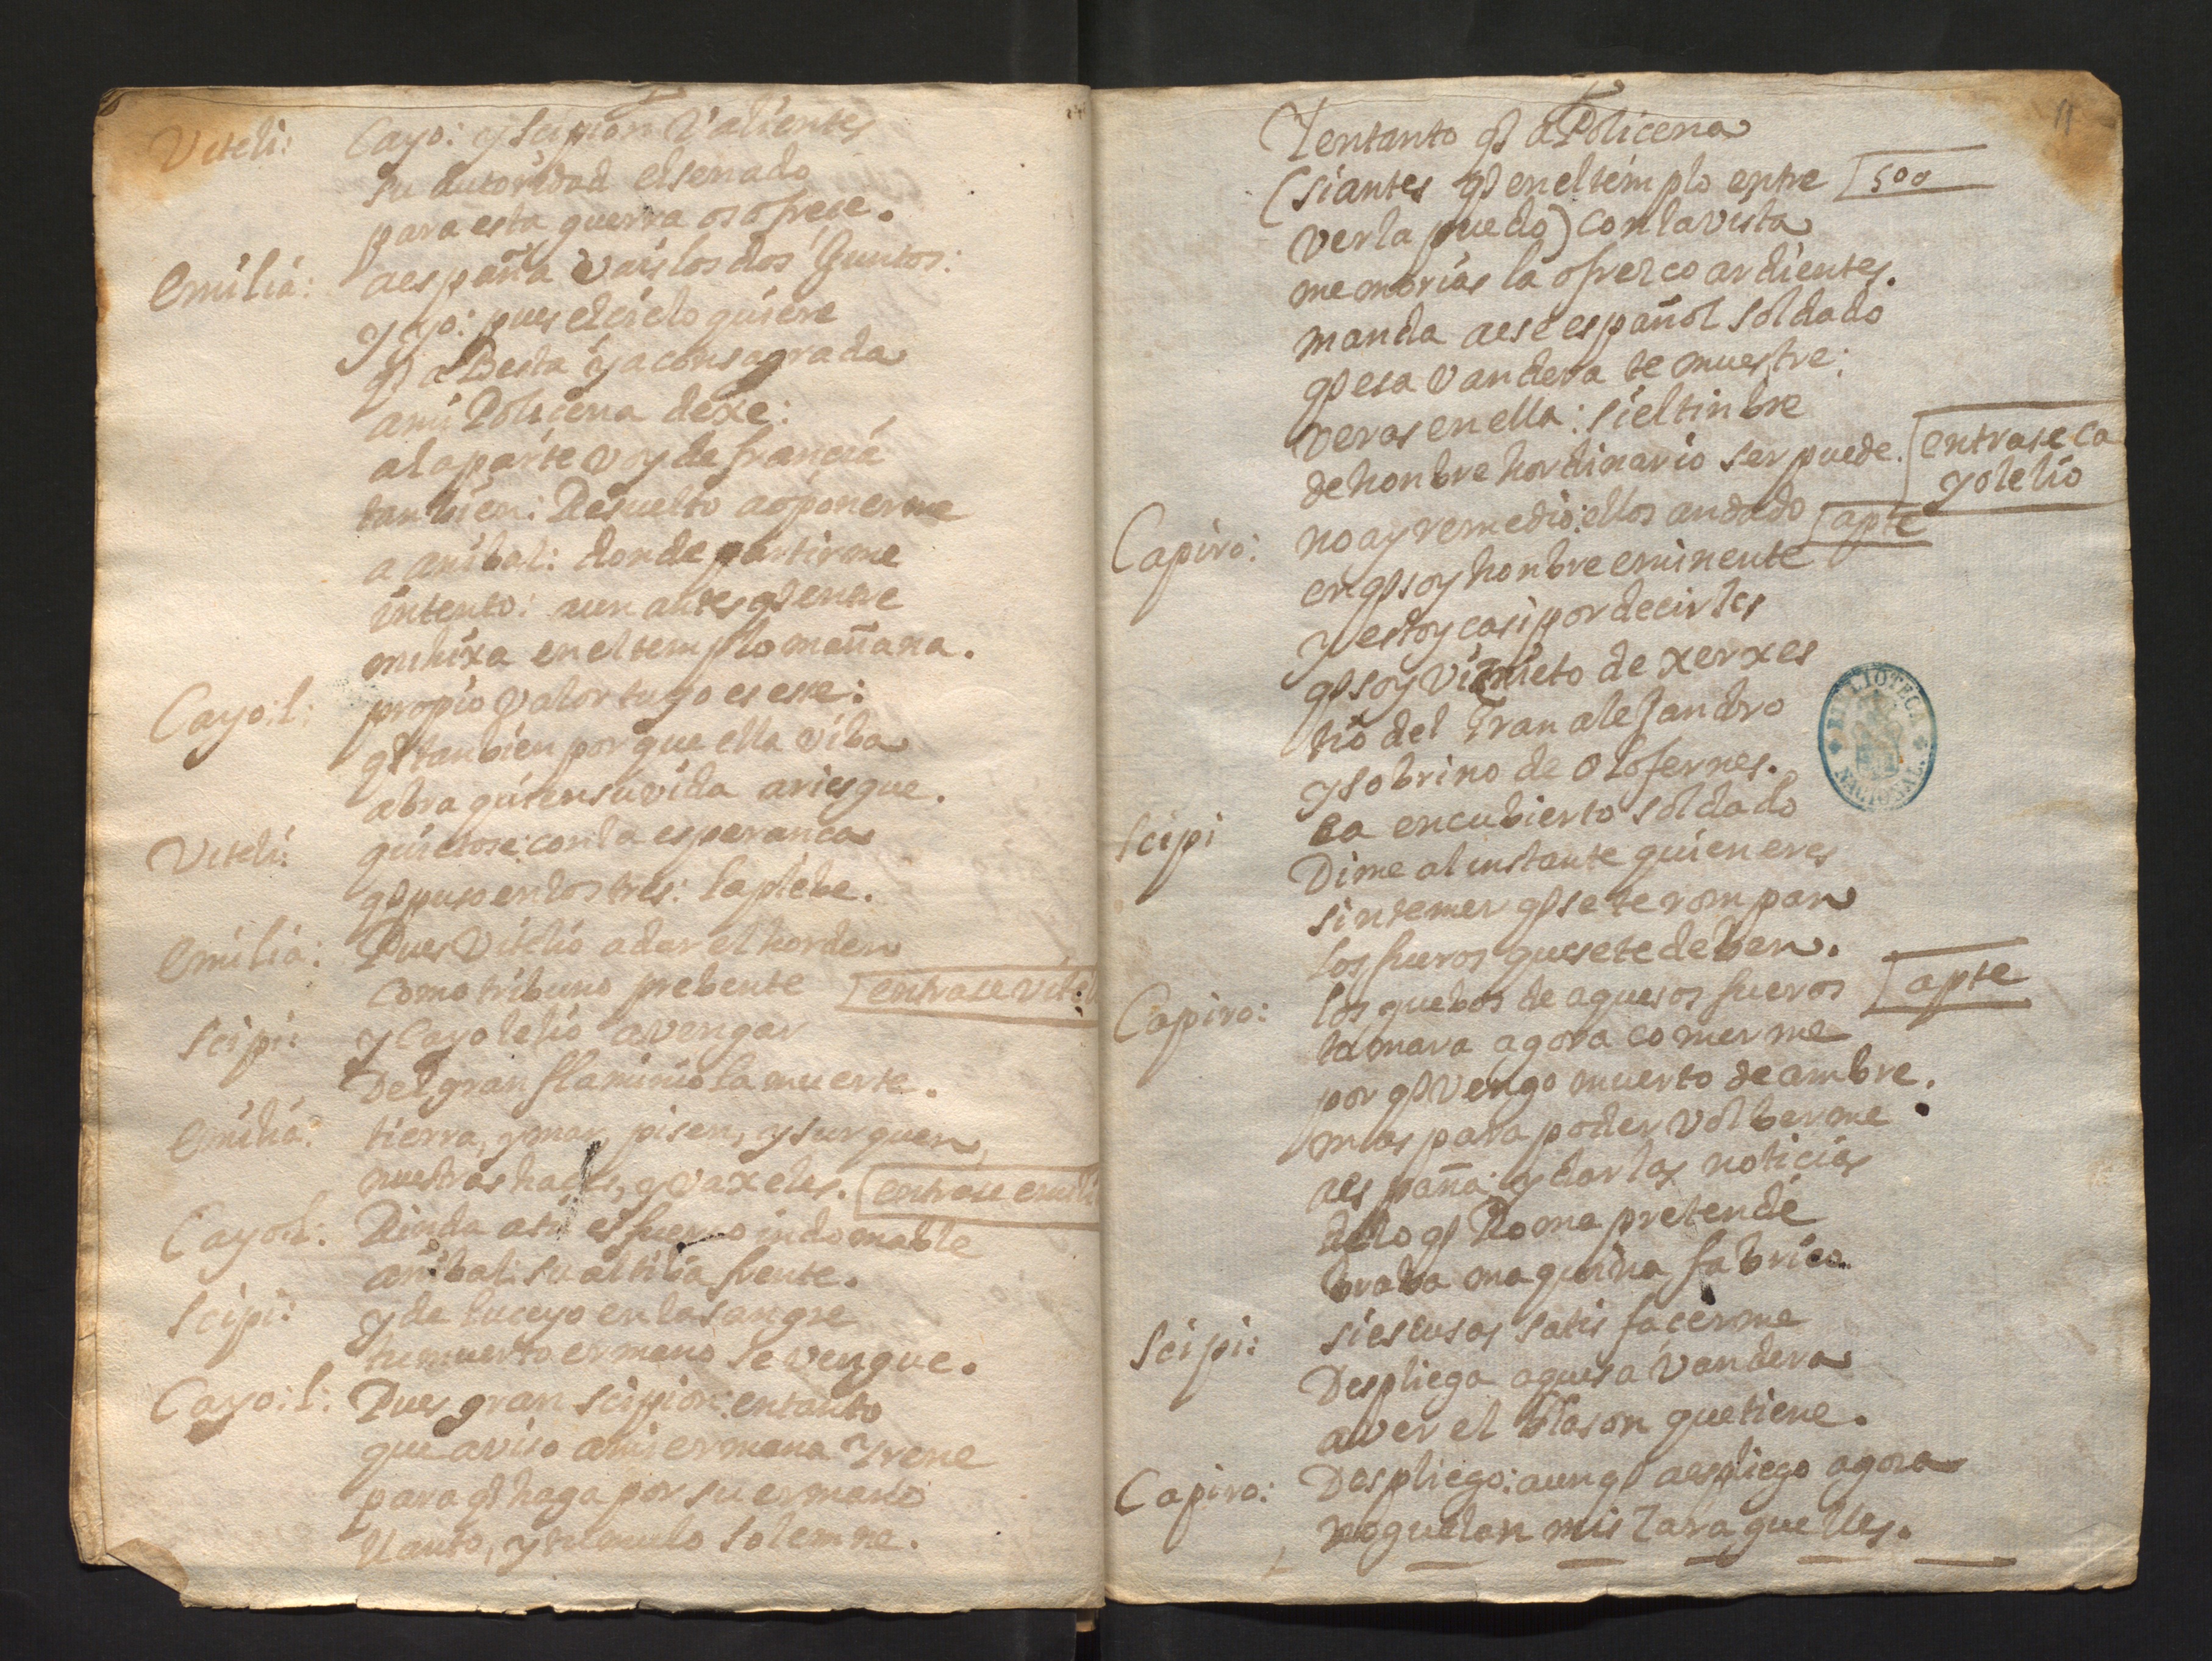 Viteli: Cayo: y scipion Valientes
su autoridad el senado
para esta guerra os ofrece.
Emilia: a españa vais los dos Juntos:
y yo: pues el cielo quiere
q̃ a Besta ya consagrada
a mi Policena dexe:
a la parte voy de francia
tanbien: Resuelto a oponerme
a anibal: donde partirme
intento: aun antes q̃ entre
mi hixa en el templo mañana.
Cayo:l: propio valor tuyo es ese:
q̃ tanbien por que ella viba
abra quien su vida ariesgue.
Viteli: quietose: con la esperanca
q̃ puso en los tres: la plebe.
Emilia: Pues Vitelio a dar el horden
como tribuno prebente [entrase vitel
Scipi: y Cayo lelio a vengar
Del gran flaminio la muerte.
Emilia: tierra, y mar, pisen, y surquen,
nuestras hazes, y vaxeles. [entrase emili
Cayo:l: Rinda a tu esfuerco indomable
anibal: su altiba frente.
Scipi: y de luceyo en la sangre
tu muerto ermano se vengue.
Cayo:l: Pues gran scipion: en tanto
que aviso a mi ermana Yrene
para q̃ haga por su ermano
llanto, y tumulo solemne.
11
Y en tanto q̃ a Policena
(si antes q̃ en el templo entre [500
verla puedo) con la vista
memorias la ofrezco ardientes.
manda a ese español soldado
q̃ esa vandera te muestre:
veras en ella: si el tinbre
de honbre hordinario ser puede. [entrase ca
yo lelio
Capiro: no ay remedio: ellos an dado [apte
en q̃ soy honbre eminente
y estoy casi por decirles
q̃ soy viznieto de xerxes
tio del Gran aleJandro
y sobrino de olofernes.
Scipi ea encubierto soldado
Dime al instante quien eres
sin temer q̃ se te rompan
los fueros que se te deben.
Capiro: los guebos de aquesos fueros [apte
tomara agora comerme
por q̃ vengo muerto de ambre.
mas para poder volberme
a españa: y dar las noticias
de lo q̃ Roma pretende
braba maquina fabrico
Scipi: si escusas satisfacerme
Despliega aquesa vandera
a ver el blason que tiene.
Capiro: Despliego: aunq̃ a espliego agora
no guelan mis Zaraguelles.
BIBLIOTECA NACIONAL